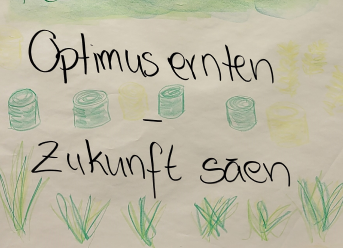 Optimus ernten
–
Zukunft säen